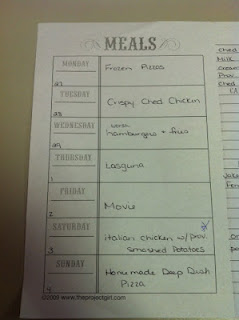 MEALS
MONDAY
Frozen Pizzas
27
TUESDAY
Crispy Ched Chicken
28
WEDNESDAY
hamburgers + fries
29
THURSDAY
Lasguna
1
FRIDAY
Movie
2
SATURDAY
italian chicken w/ prov.
3
Smashed Potatoes
SUNDAY
Homemade Deep Dish
4
Pizza
©2009 www.theprojectgirl.com
Ched
Milk